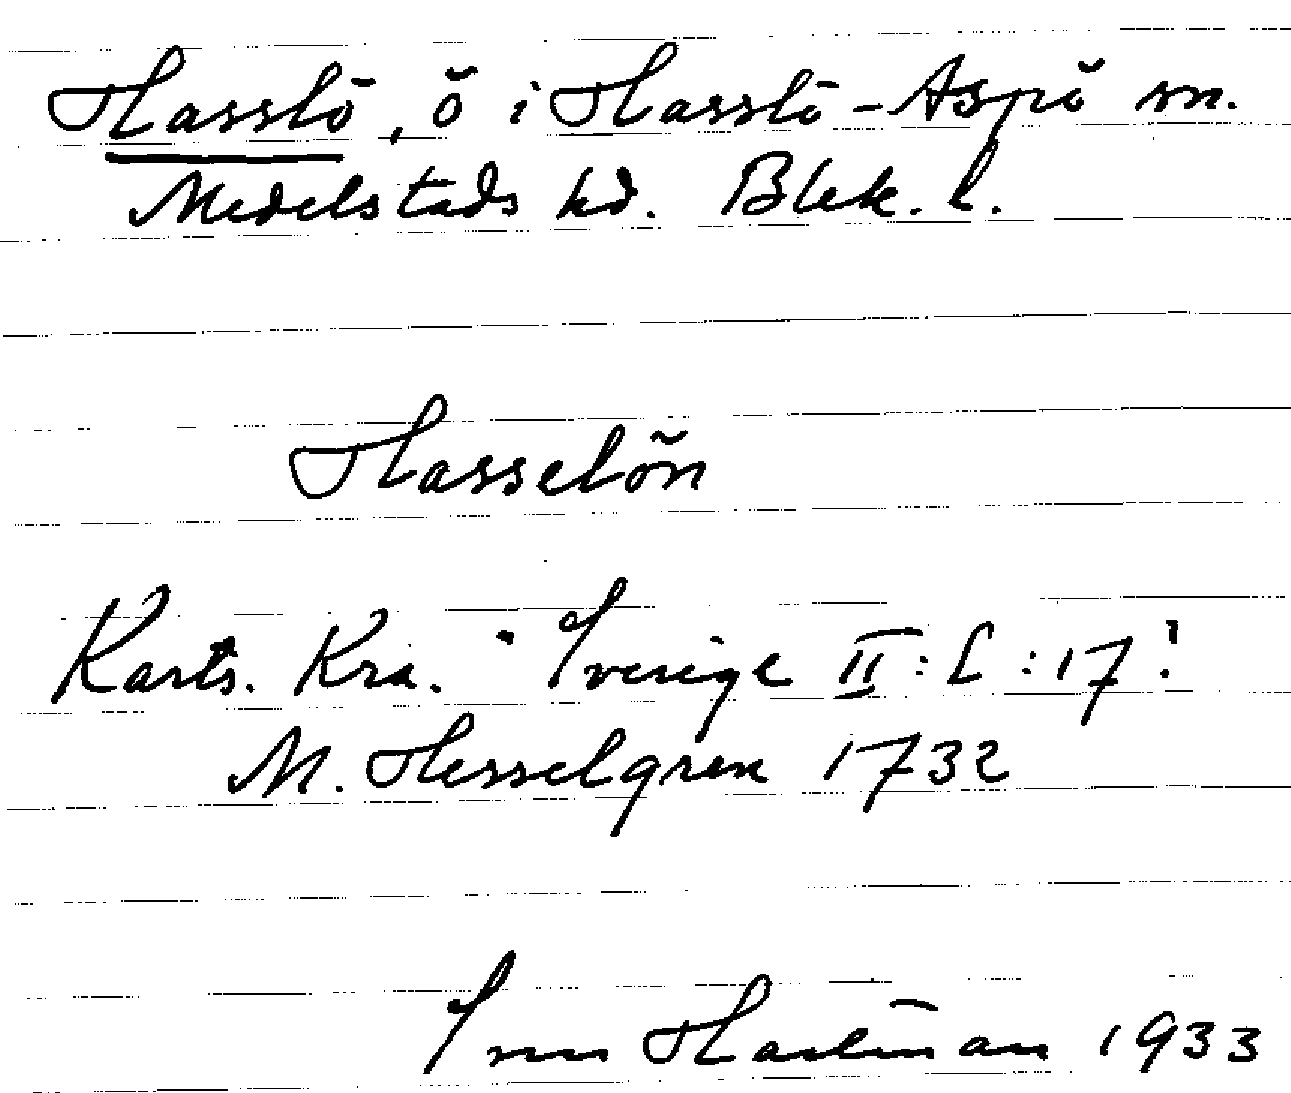 Hasslö, ö i Hasslö-Aspö sn.
Medelstads hd. Blek. l.
Hasselön
Karts. Kra. "Sverige II:L:17"
M. Hesselgren 1732
Sven 1933